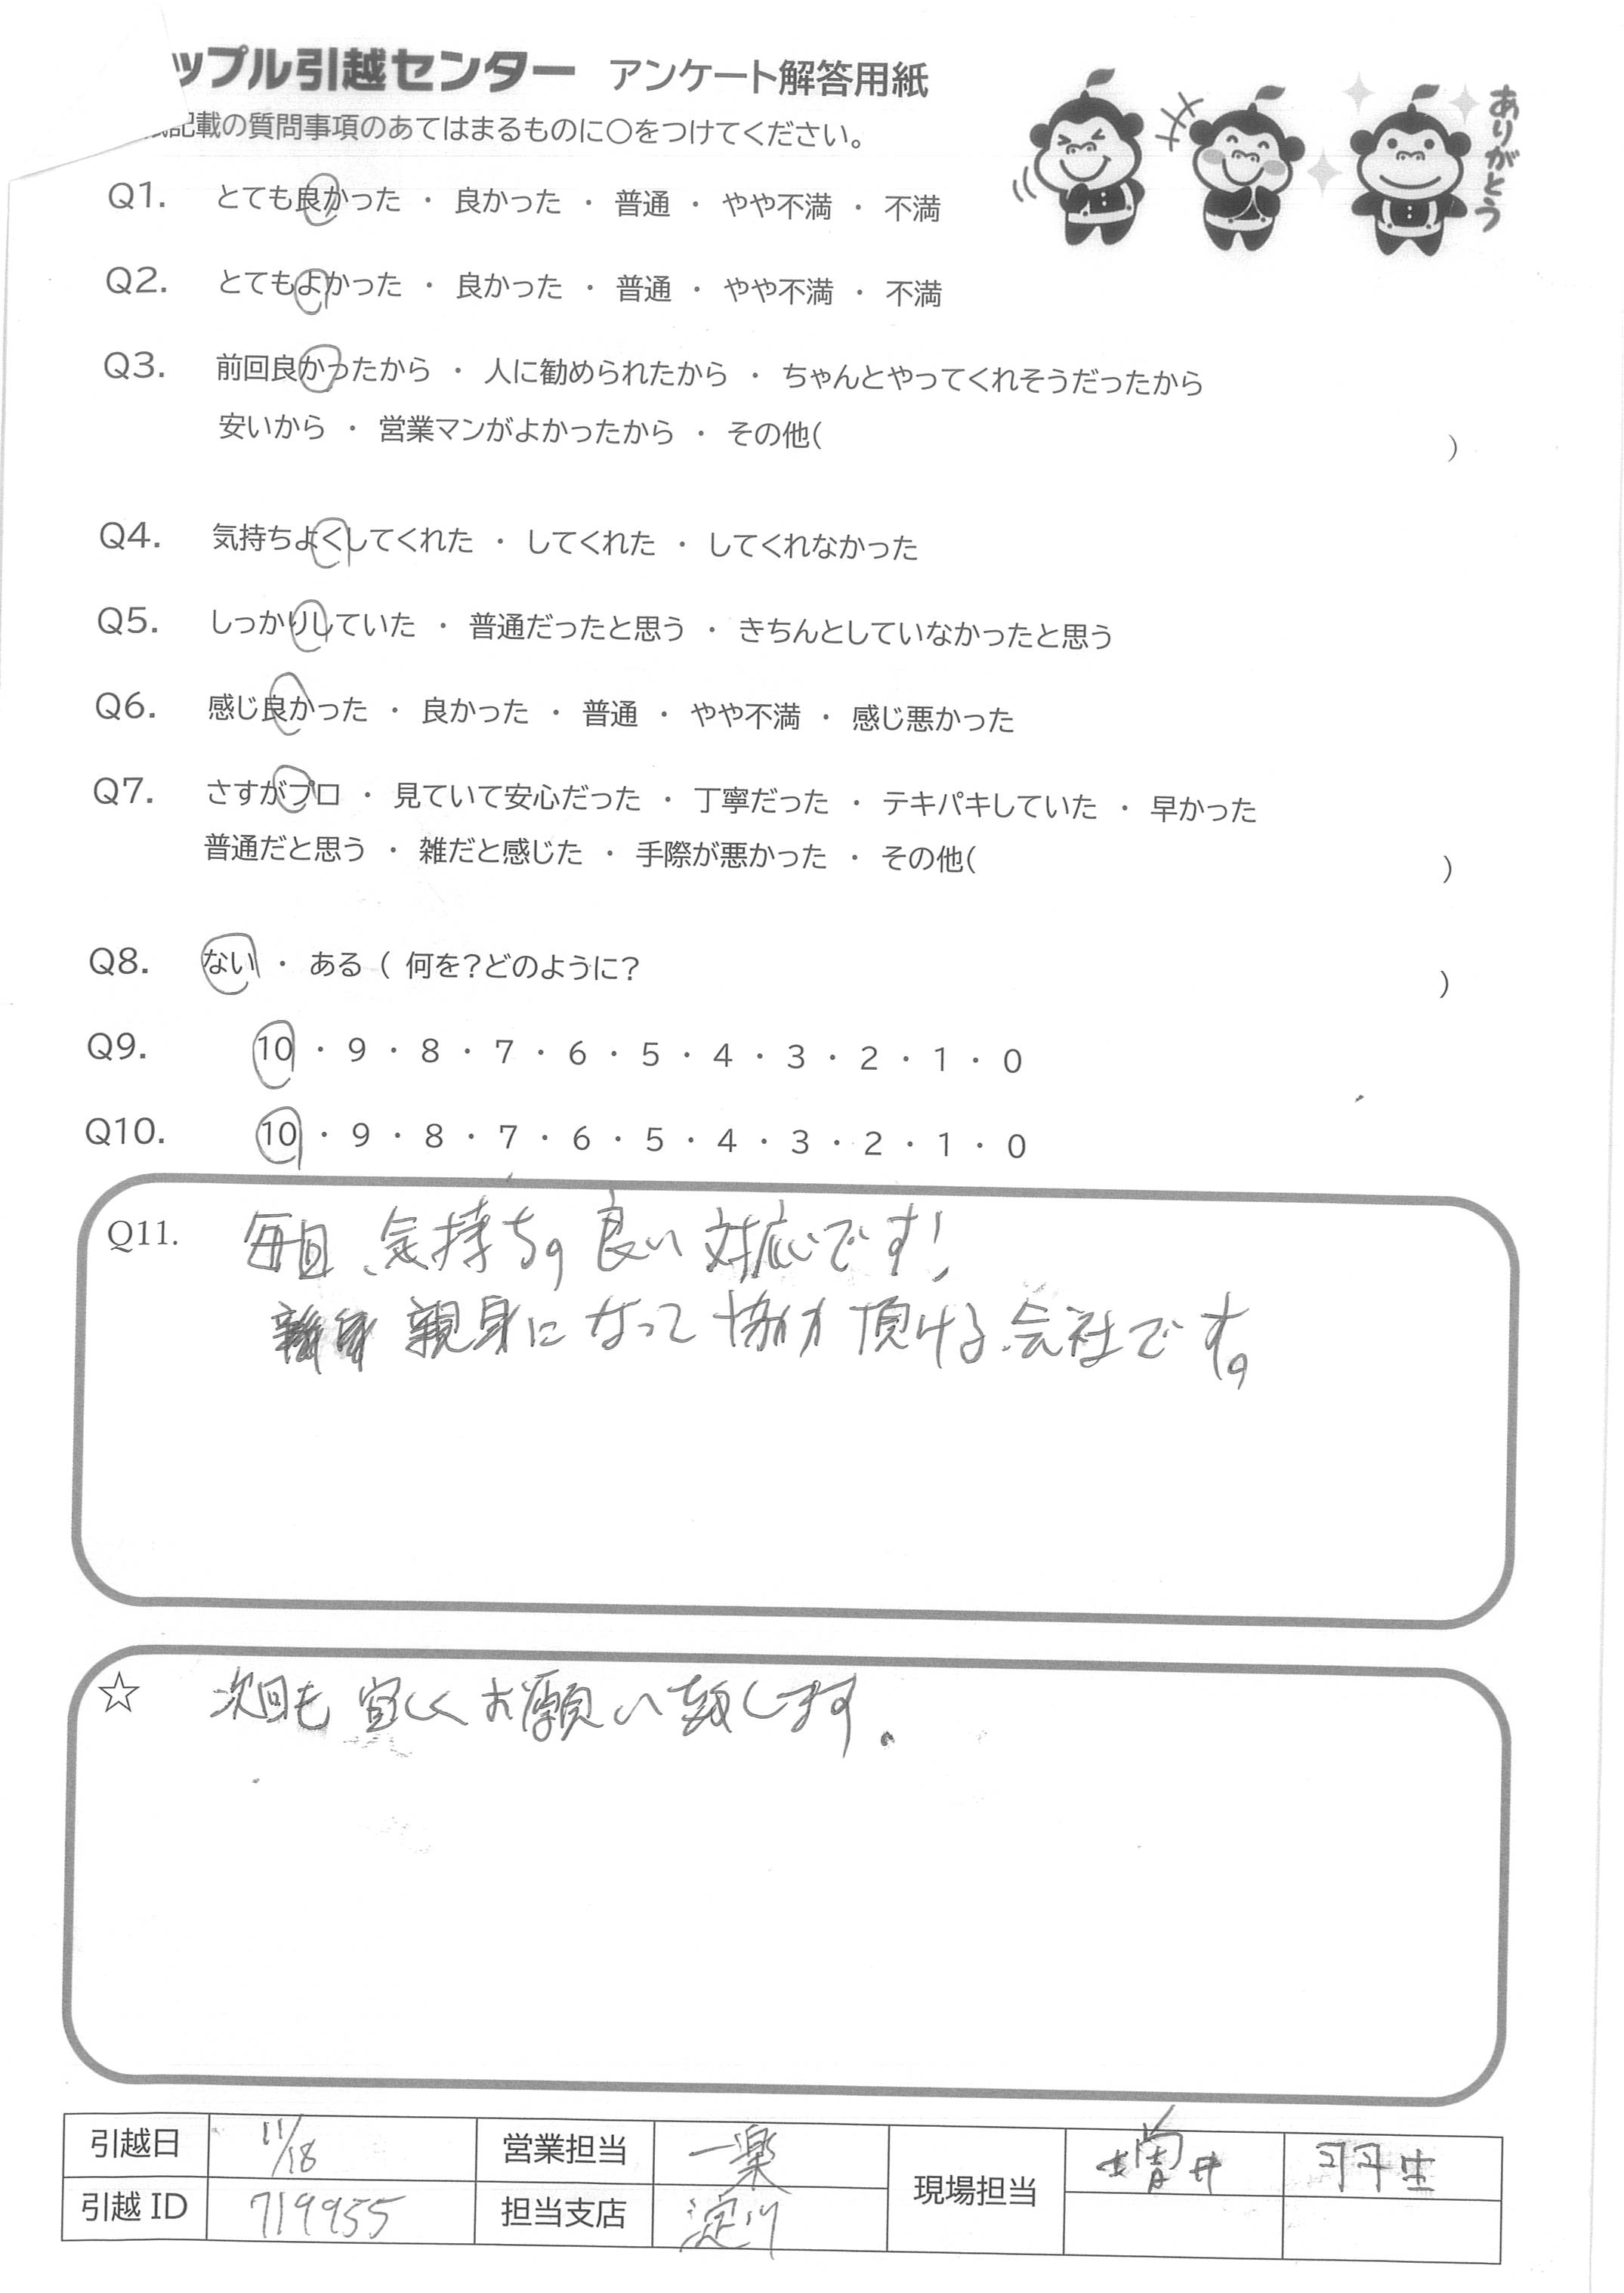 ップル引越センター アンケート解答用紙
記載の質問事項のあてはまるものに○をつけてください。
ありがとう
Q1. とても良かった ・ 良かった ・ 普通 ・ やや不満 ・ 不満
Q2. とてもよかった ・ 良かった ・ 普通 ・ やや不満 ・ 不満
Q3. 前回良かったから ・ 人に勧められたから ・ ちゃんとやってくれそうだったから
安いから ・ 営業マンがよかったから ・ その他( )
Q4. 気持ちよくしてくれた ・ してくれた ・ してくれなかった
Q5. しっかりしていた ・ 普通だったと思う ・ きちんとしていなかったと思う
Q6. 感じ良かった ・ 良かった ・ 普通 ・ やや不満 ・ 感じ悪かった
Q7. さすがプロ ・ 見ていて安心だった ・ 丁寧だった ・ テキパキしていた ・ 早かった
普通だと思う ・ 雑だと感じた ・ 手際が悪かった ・ その他( )
Q8. ない ・ ある ( 何を?どのように? )
Q9. 10 ・ 9 ・ 8 ・ 7 ・ 6 ・ 5 ・ 4 ・ 3 ・ 2 ・ 1 ・ 0
Q10. 10 ・ 9 ・ 8 ・ 7 ・ 6 ・ 5 ・ 4 ・ 3 ・ 2 ・ 1 ・ 0
Q11. 毎回、気持ちの良い対応です!
親身になって協力頂ける会社です。
☆ 次回も宜しくお願い致します。
引越日 11/18 営業担当 一楽 現場担当 増井 羽生
引越ID 719955 担当支店 淀川